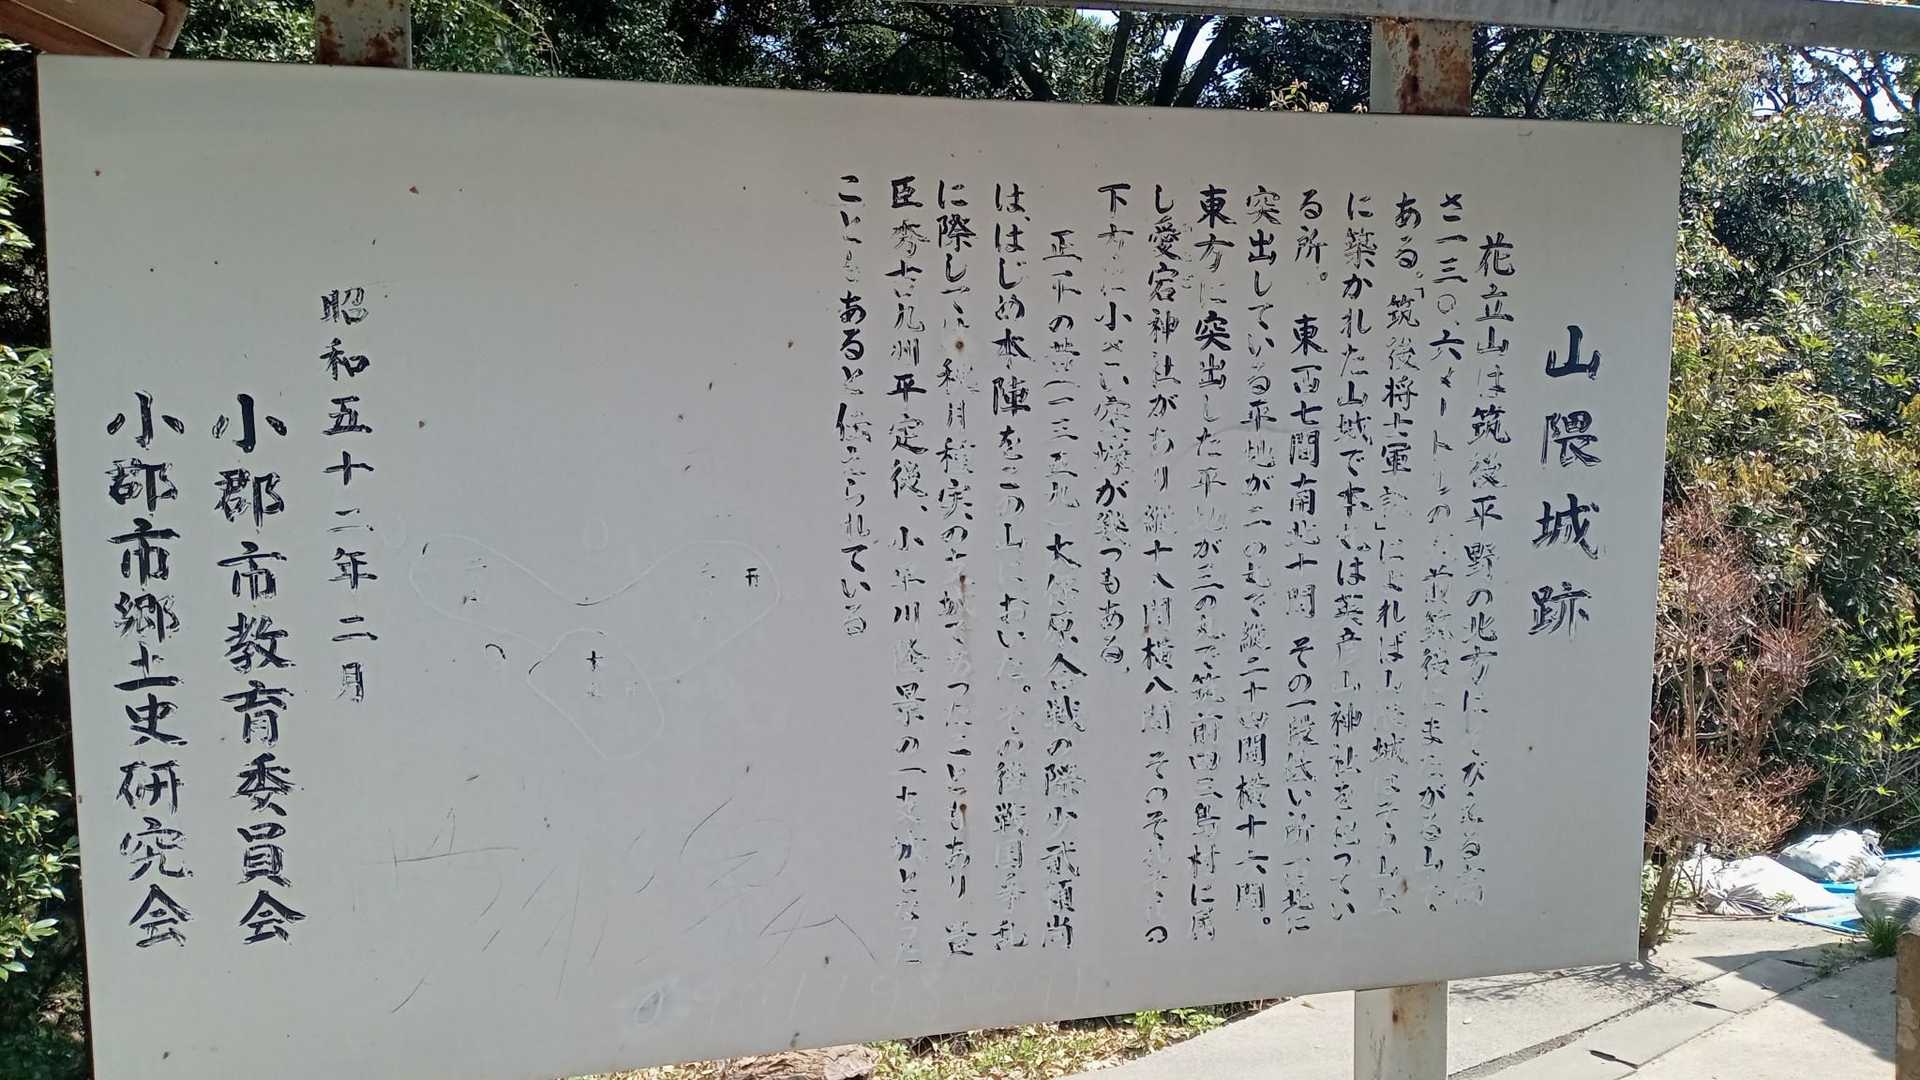 山隈城跡
花立山は筑後平野の北方に
さ一三〇、六メートルの
ある。「筑後将士軍談」によれば
に築かれた山城で本丸は英彦山神社を祀ってい
る所。東西七間南北十間 その一段低い所西北に
突出している平地が二の丸で縦二十四間横十六間。
東方に突出した平地が三の丸で筑前 三島村に属
し愛宕神社があり縦十八間横八間 その
下方に小さい空壕が幾つもある。
正平の 大保原合戦の際少弐頼尚
は、はじめ本陣をこの山においた。その後戦国争乱
に際しては秋月種実の 城であったこともあり
臣秀吉九州平定後、小早川隆景の一支城となった
こともあると伝えられている
昭和五十二年二月
小郡市教育委員会
小郡市郷土史研究会